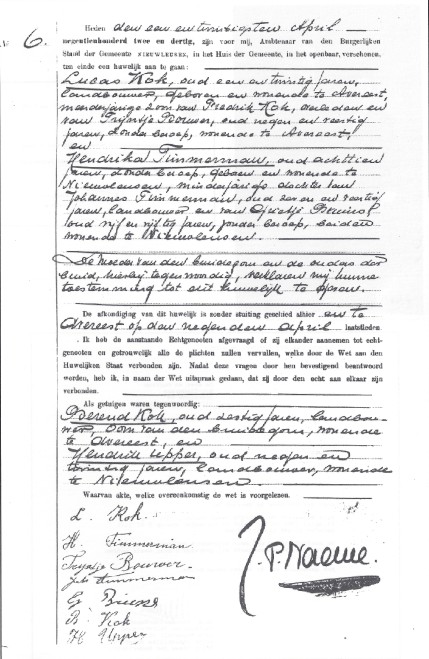 6.
Heden den een en twintigsten April
negentienhonderd twee en dertig, zijn voor mij, Ambtenaar van den Burgerlijken
Stand der Gemeente NIEUWLEUSEN, in het Huis der Gemeente, in het openbaar, verschenen,
ten einde een huwelijk aan te gaan:
Lucas Kok, oud een en twintig jaren,
landbouwer, geboren en wonende te Avereest,
meerderjarige zoon van Fredrik Kok, overleden en
van Trijntje Bouwer, oud negen en veertig
jaren, zonder beroep, wonende te Avereest,
en
Hendrika Timmerman, oud achttien
jaren, zonder beroep, geboren en wonende te
Nieuwleusen, minderjarige dochter van
Johannes Timmerman, oud zes en veertig
jaren, landbouwer en van Grietje
oud vijf en vijftig jaren, zonder beroep, beiden
wonende te Nieuwleusen.
De moeder van den bruidegom en de ouders der
bruid, hierbij tegenwoordig, verklaren mij hunne
toestemming tot dit huwelijk te geven.
De afkondiging van dit huwelijk is zonder stuiting geschied alhier en te
Avereest op den negenden April laatstleden.
Ik heb de aanstaande Echtgenooten afgevraagd of zij elkander aannemen tot echt-
genooten en getrouwelijk alle de plichten zullen vervullen, welke door de Wet aan den
Huwelijken Staat verbonden zijn. Nadat deze vragen door hen bevestigend beantwoord
werden, heb ik, in naam der Wet uitspraak gedaan, dat zij door den echt aan elkaar zijn
verbonden.
Als getuigen waren tegenwoordig:
Berend Kok, oud zestig jaren, landbou-
wer, oom van den bruidegom, wonende
te Avereest, en
Hendrik oud negen en
twintig jaren, landbouwer, wonende
te Nieuwleusen.
Waarvan akte, welke overeenkomstig de wet is voorgelezen.
L. Kok.
H. Timmerman
Trijntje Bouwer
Joh Timmerman
G.
B. Kok
H
J.P.